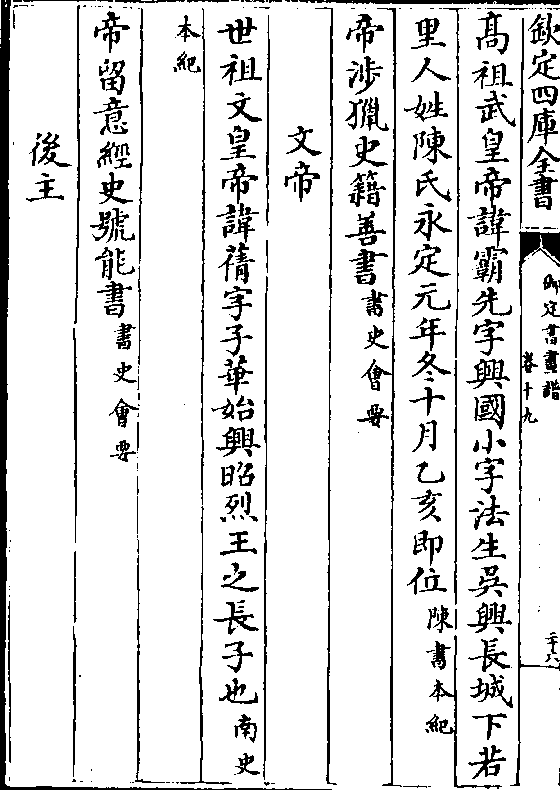 欽定四庫全書
御定書畫譜
卷十九
二十六
高祖武皇帝諱霸先字興國小字法生吳興長城下若
里人姓陳氏永定元年冬十月乙亥即位陳書本紀
帝涉獵史籍善書書史會要
文帝
世祖文皇帝諱蒨字子華始興昭烈王之長子也南史
本紀
帝留意經史號能書書史會要
後主